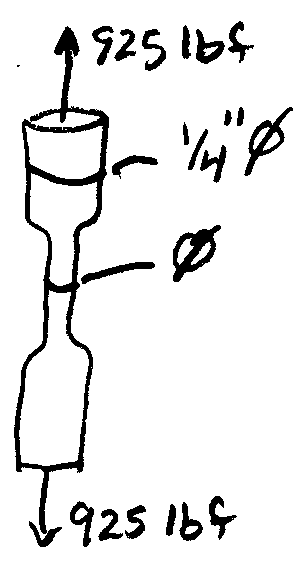 925 lbf
1/4" Ø
Ø
925 lbf